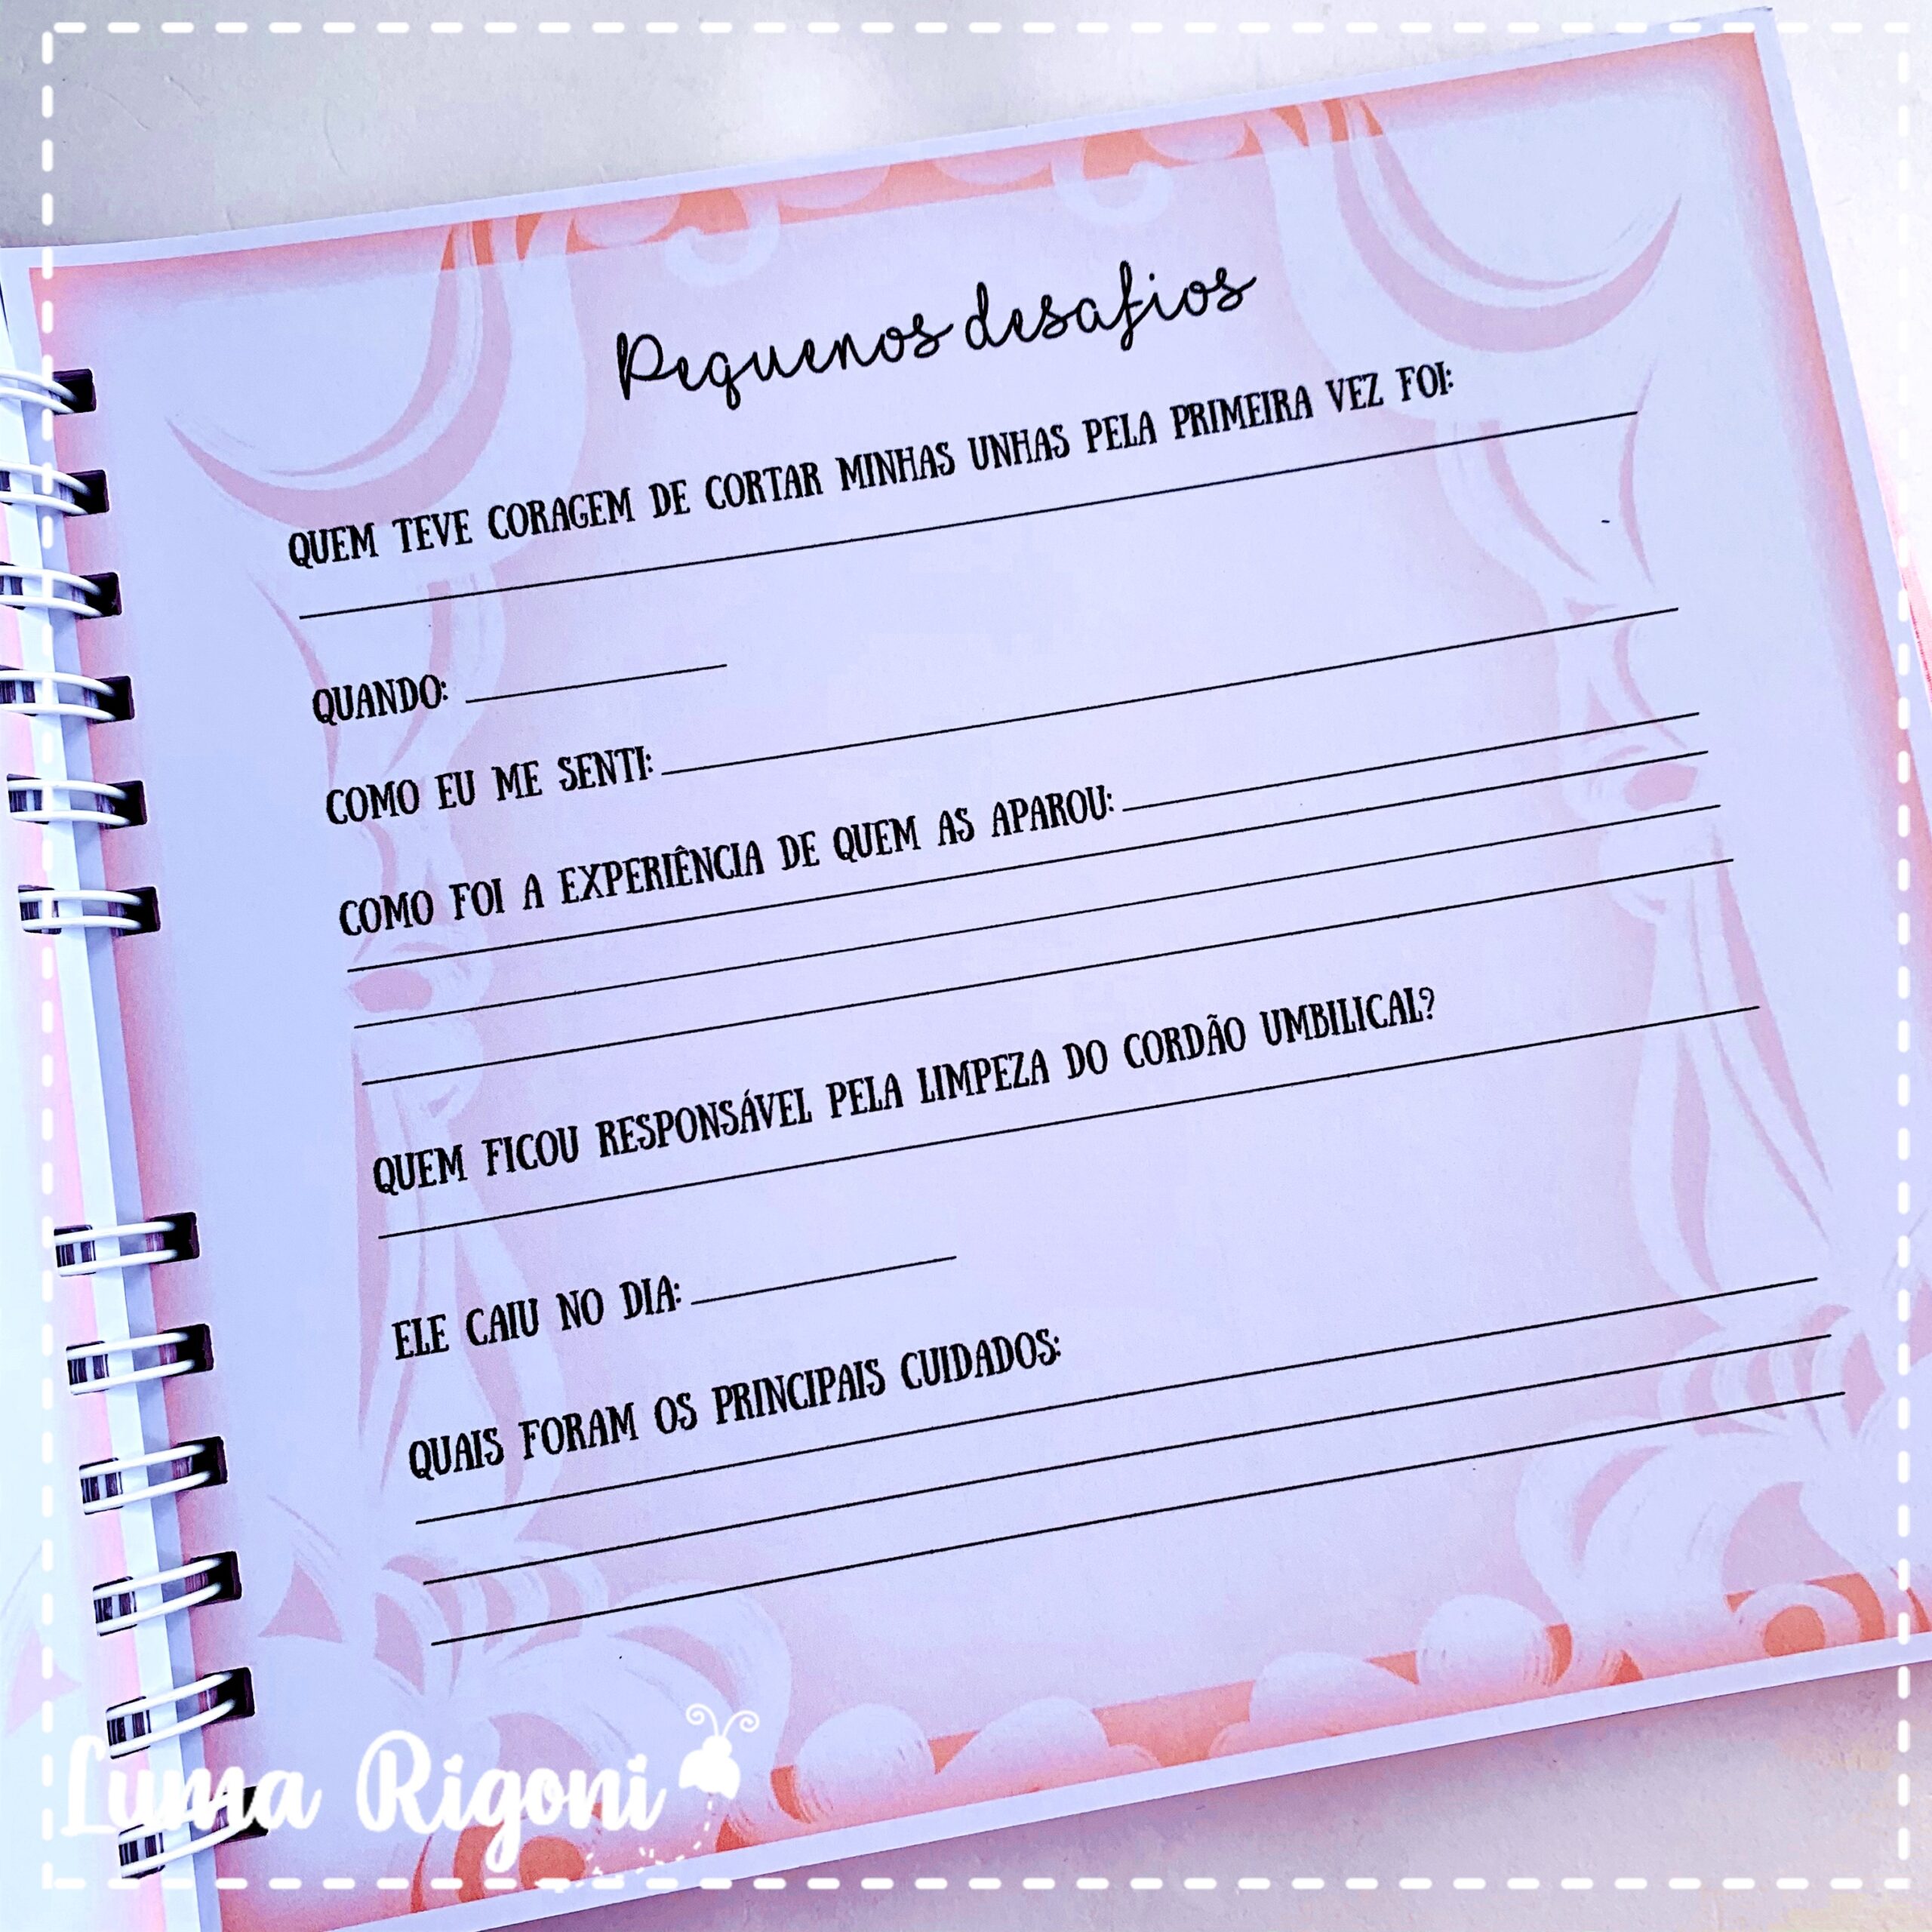 Pequenos desafios
QUEM TEVE CORAGEM DE CORTAR MINHAS UNHAS PELA PRIMEIRA VEZ FOI:
QUANDO:
COMO EU ME SENTI:
COMO FOI A EXPERIÊNCIA DE QUEM AS APAROU:
QUEM FICOU RESPONSÁVEL PELA LIMPEZA DO CORDÃO UMBILICAL?
ELE CAIU NO DIA:
QUAIS FORAM OS PRINCIPAIS CUIDADOS:
Luma Rigoni